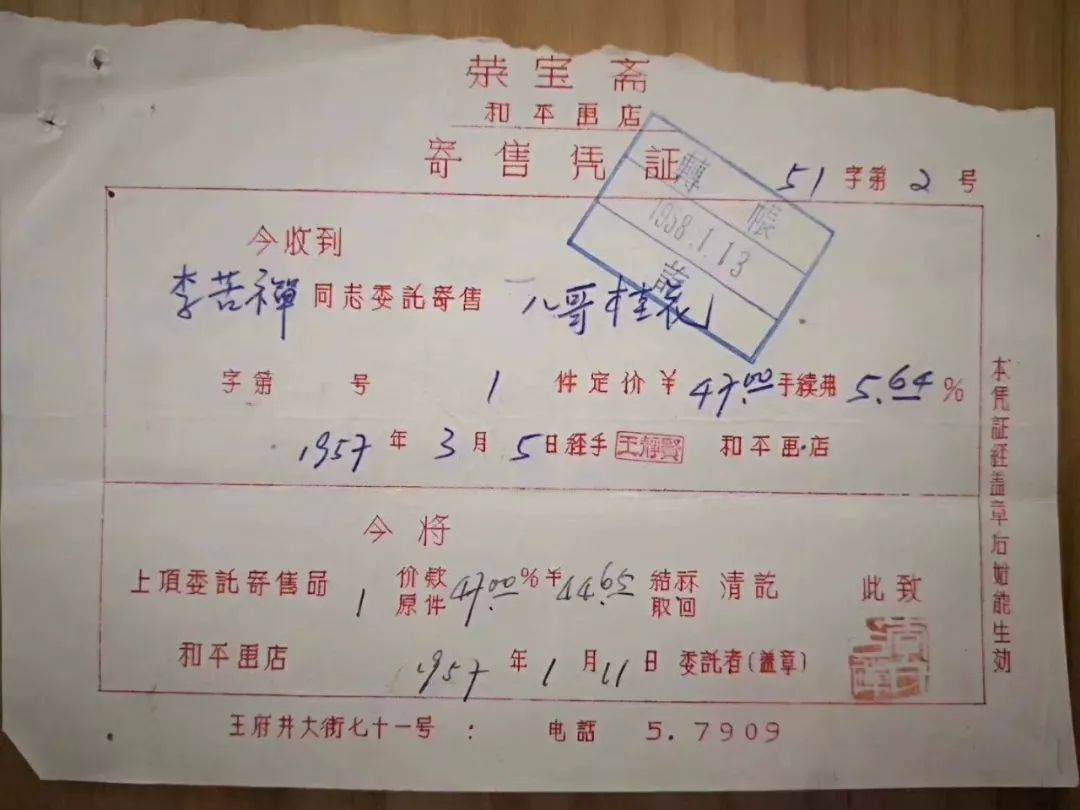 荣宝斋
和平画店
寄售凭証
51字第2号
轉帳
1958.1.13
訖
今收到
李苦禪同志委託寄售 八哥桂花
字第 号 1 件定价¥47.00手續弗5.64%
1957年3月5日経手 王靜賢 和平画店
今将
上項委託寄售品 1 价欵 47.00%¥44.65 結
原件 取回
清訖 此致
和平画店 1957年1月11日 委託者(盖章)
王府井大街七十一号: 电話 5.7909
本凭証経盖章后始能生効